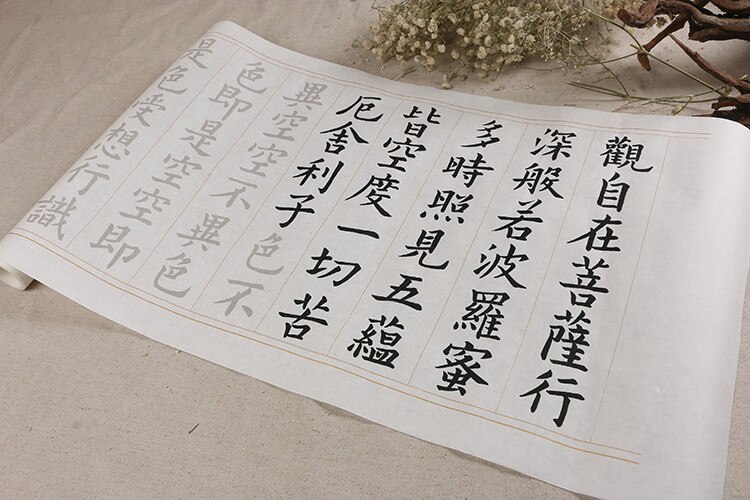 觀自在菩薩行
深般若波羅蜜
多時照見五蘊
皆空度一切苦
厄舍利子色不
異空空不異色
色即是空空即
是色受想行識